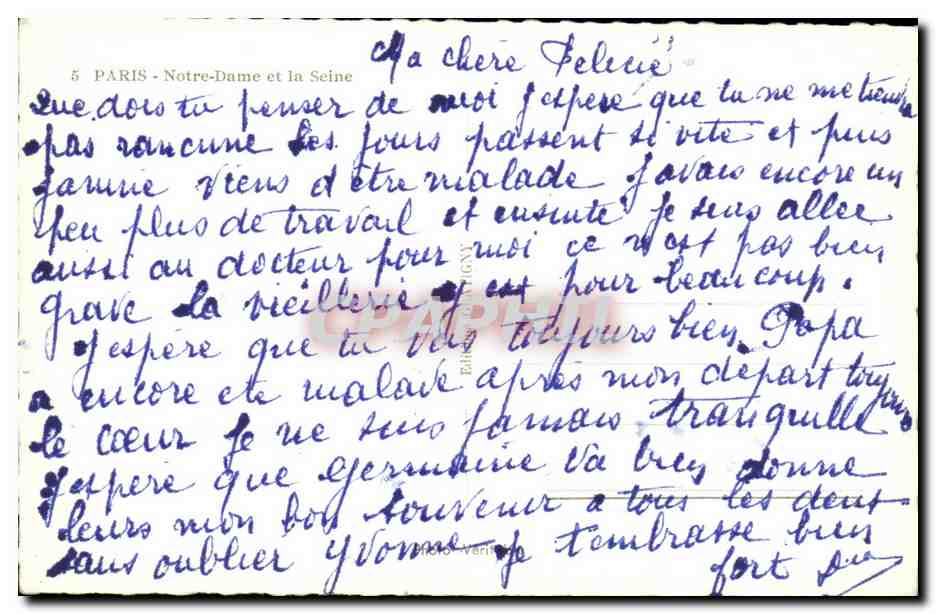 Ma chère Felicie
5 PARIS - Notre-Dame et la Seine
Que dois tu penser de moi J'espère que tu ne me tiendra
pas rancune les jours passent si vite et puis
Janine viens d'être malade J'avais encore un
peu plus de travail et ensuite je suis allée
aussi au docteur pour moi ce n'est pas bien
grave la vieillerie y est pour beaucoup.
J'espère que tu vas toujours bien. Papa
a encore ete malade après mon départ toujours
le cœur Je ne suis jamais tranquille
J'espère que Germaine va bien donne
leurs mon bon souvenir a tous les deux
sans oublier Yvonne Je t'embrasse bien
fort
CPAPHIL
Photo